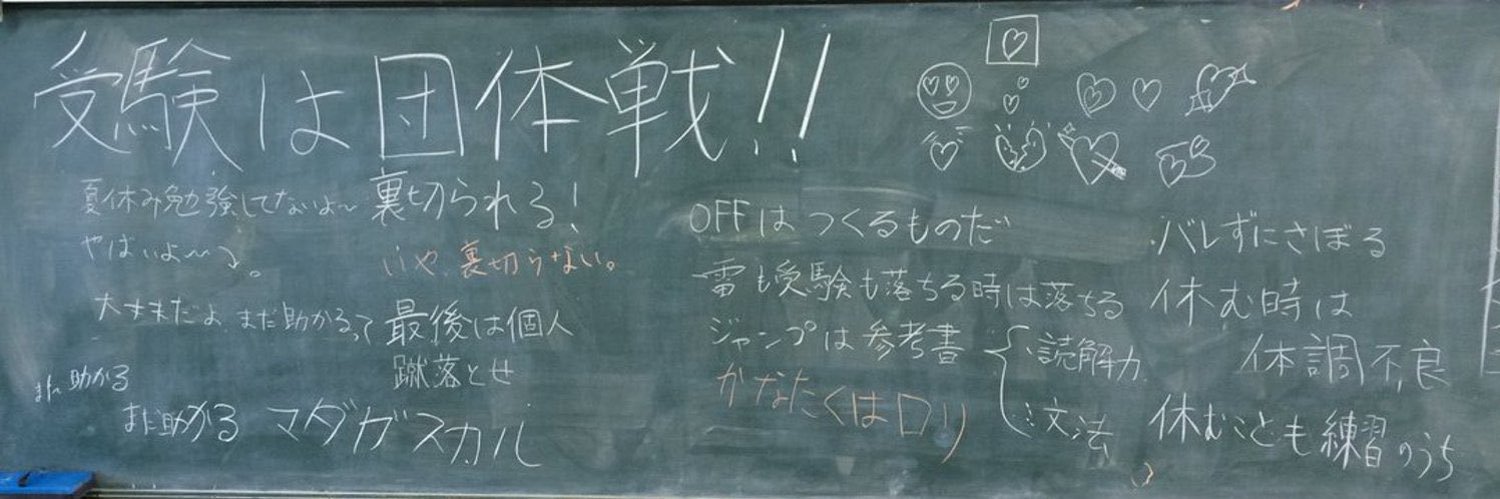 受験は団体戦!!
夏休み勉強してないよ〜
やばいよ〜〜。
大丈夫だよ まだ助かるって
まだ助かる
まだ助かる
マダガスカル
裏切られる!
いや、裏切らない。
最後は個人
蹴落とせ
OFFはつくるものだ
雷も受験も落ちる時は落ちる
ジャンプは参考書
読解力
文法
かなたくはロリ
バレずにさぼる
休む時は
体調不良
休むことも練習のうち